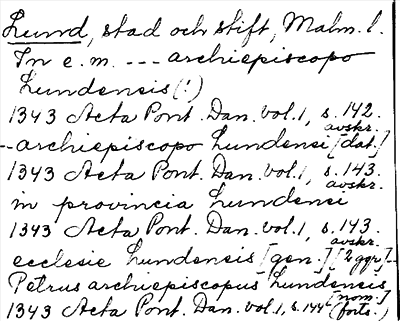 Lund, stad och stift, Malm. l.
In e.m. --- archiepiscopo
Lundensis (!)
1343 Acta Pont. Dan. vol. 1, s. 142.
avskr.
--archiepiscopo Lundensi [dat.]
1343 Acta Pont. Dan. vol. 1, s. 143.
avskr.
in provincia Lundensi
1343 Acta Pont. Dan. vol. 1, s. 143.
avskr.
ecclesie Lundensis [gen.] [2 ggr]--
Petrus archiepiscopus Lundensis
[nom.]
1343 Acta Pont. Dan. vol. 1, s. 144 (forts.)